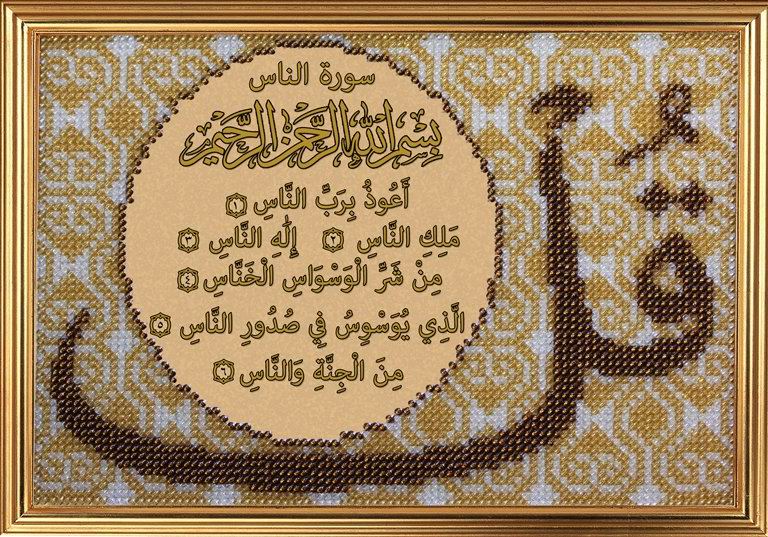 سورة الناس
بِسْمِ اللَّهِ الرَّحْمَٰنِ الرَّحِيمِ
قُل
أَعُوذُ بِرَبِّ النَّاسِ ١
مَلِكِ النَّاسِ ٢ إِلَٰهِ النَّاسِ ٣
مِنْ شَرِّ الْوَسْوَاسِ الْخَنَّاسِ ٤
الَّذِي يُوَسْوِسُ فِي صُدُورِ النَّاسِ ٥
مِنَ الْجِنَّةِ وَالنَّاسِ ٦